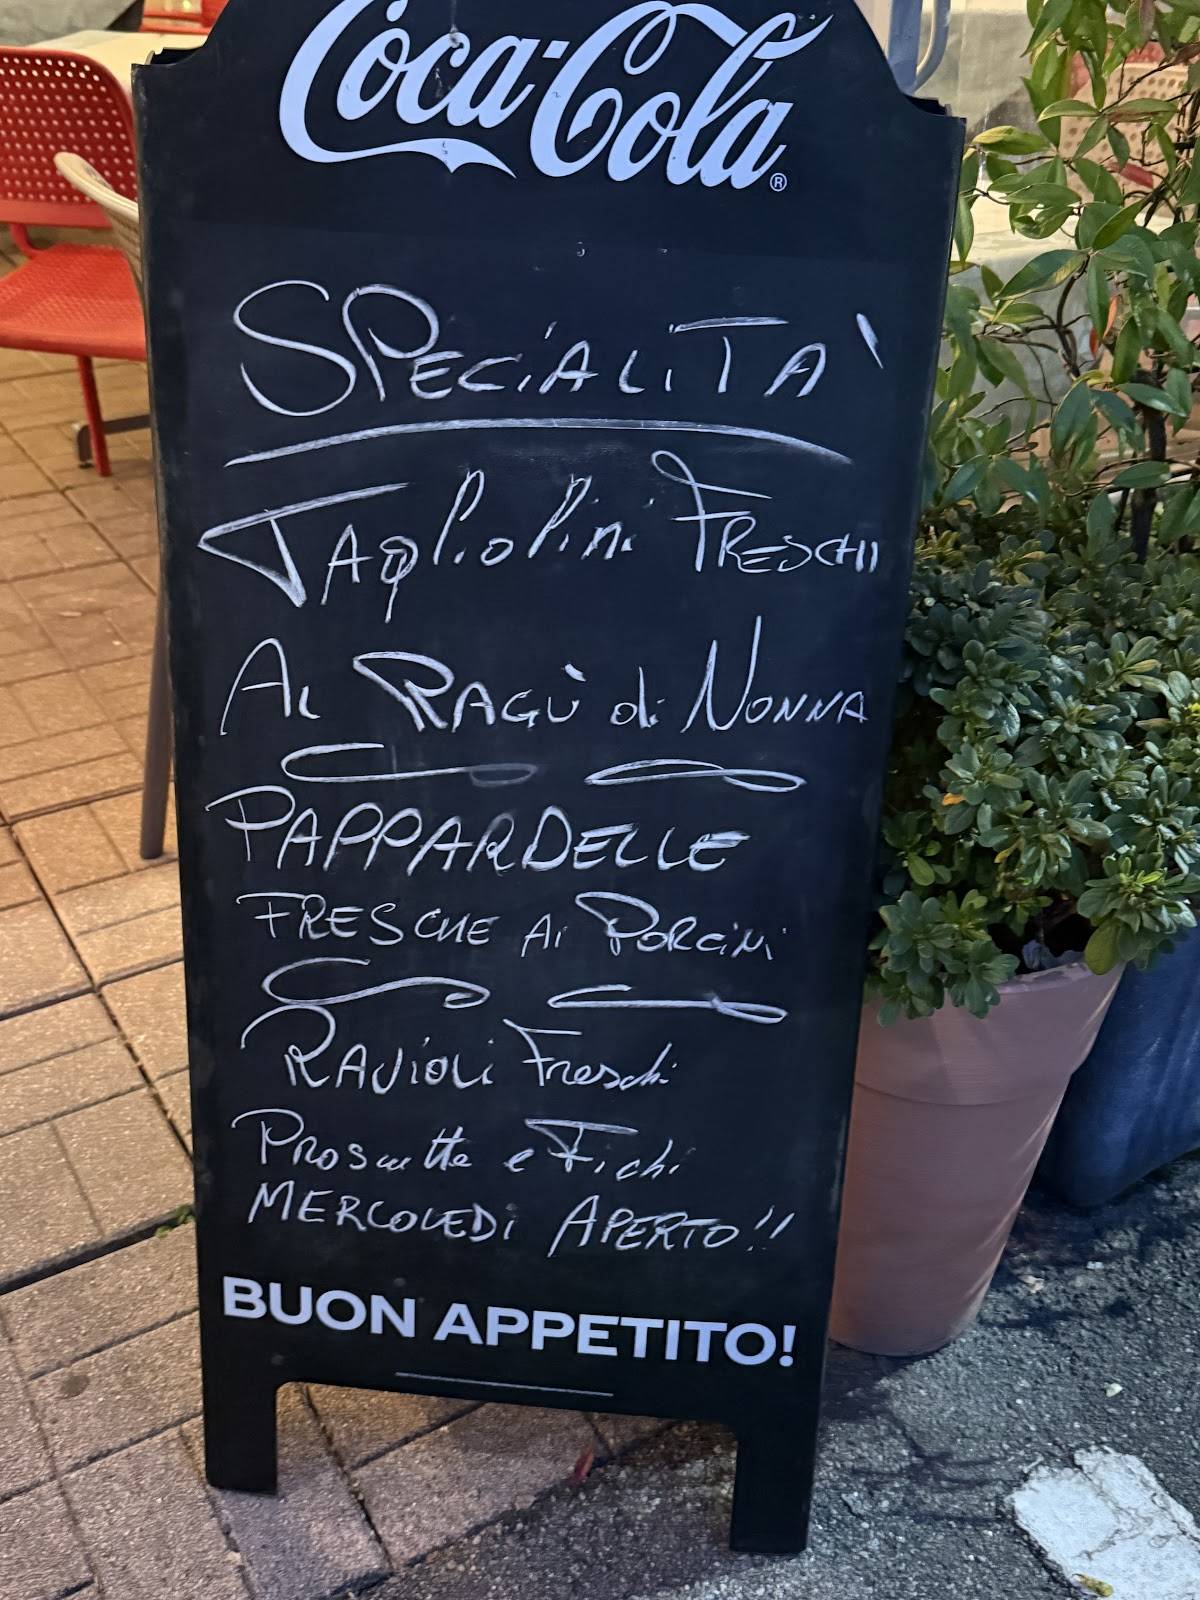 Coca-Cola®
SPECiALiTA'
TAGlioliNi FRESCHI
Al RAGÙ di NONNA
PAPPARDELLE
FRESCHE Ai PORCiNi
RAViOLi Freschi
Prosciutto e Fichi
MERCOLEDi APERTO!!
BUON APPETITO!